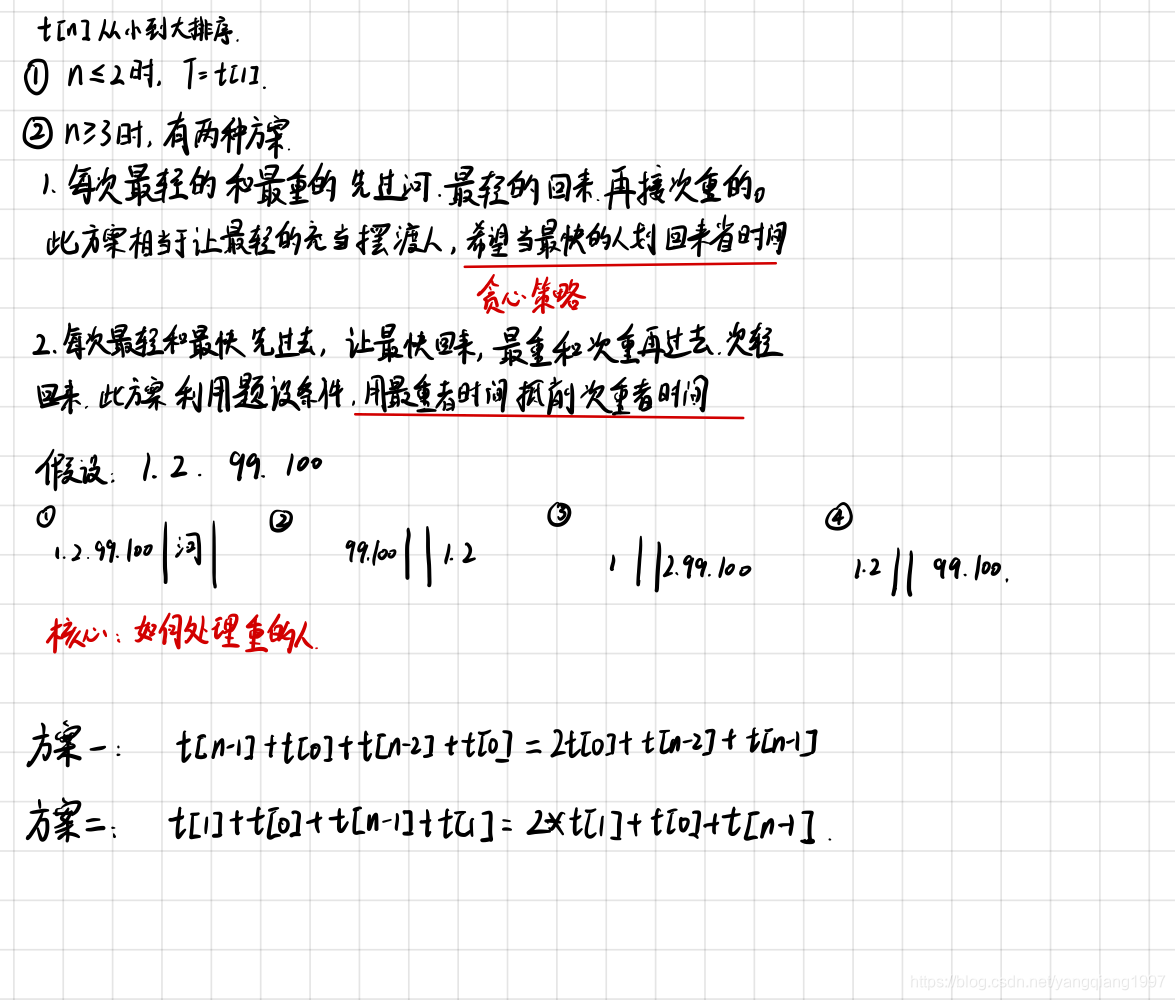 t[n]从小到大排序.
① n≤2时, T=t[1].
② n≥3时,有两种方案.
1.每次最轻的和最重的先过河.最轻的回来.再接次重的。
此方案相当于让最轻的充当摆渡人,希望当最快的人划回来省时间
贪心策略
2.每次最轻和最快先过去,让最快回来,最重和次重再过去.次轻
回来.此方案利用题设条件.用最重者时间抵前次重者时间
假设: 1. 2. 99. 100
① ② ③ ④
1.2.99.100|河| 99.100||1.2 1||2.99.100 1.2||99.100.
核心:如何处理重的人.
方案一: t[n-1]+t[0]+t[n-2]+t[0]=2t[0]+t[n-2]+t[n-1]
方案二: t[1]+t[0]+t[n-1]+t[1]=2*t[1]+t[0]+t[n-1].
https://blog.csdn.net/yangqiang1997